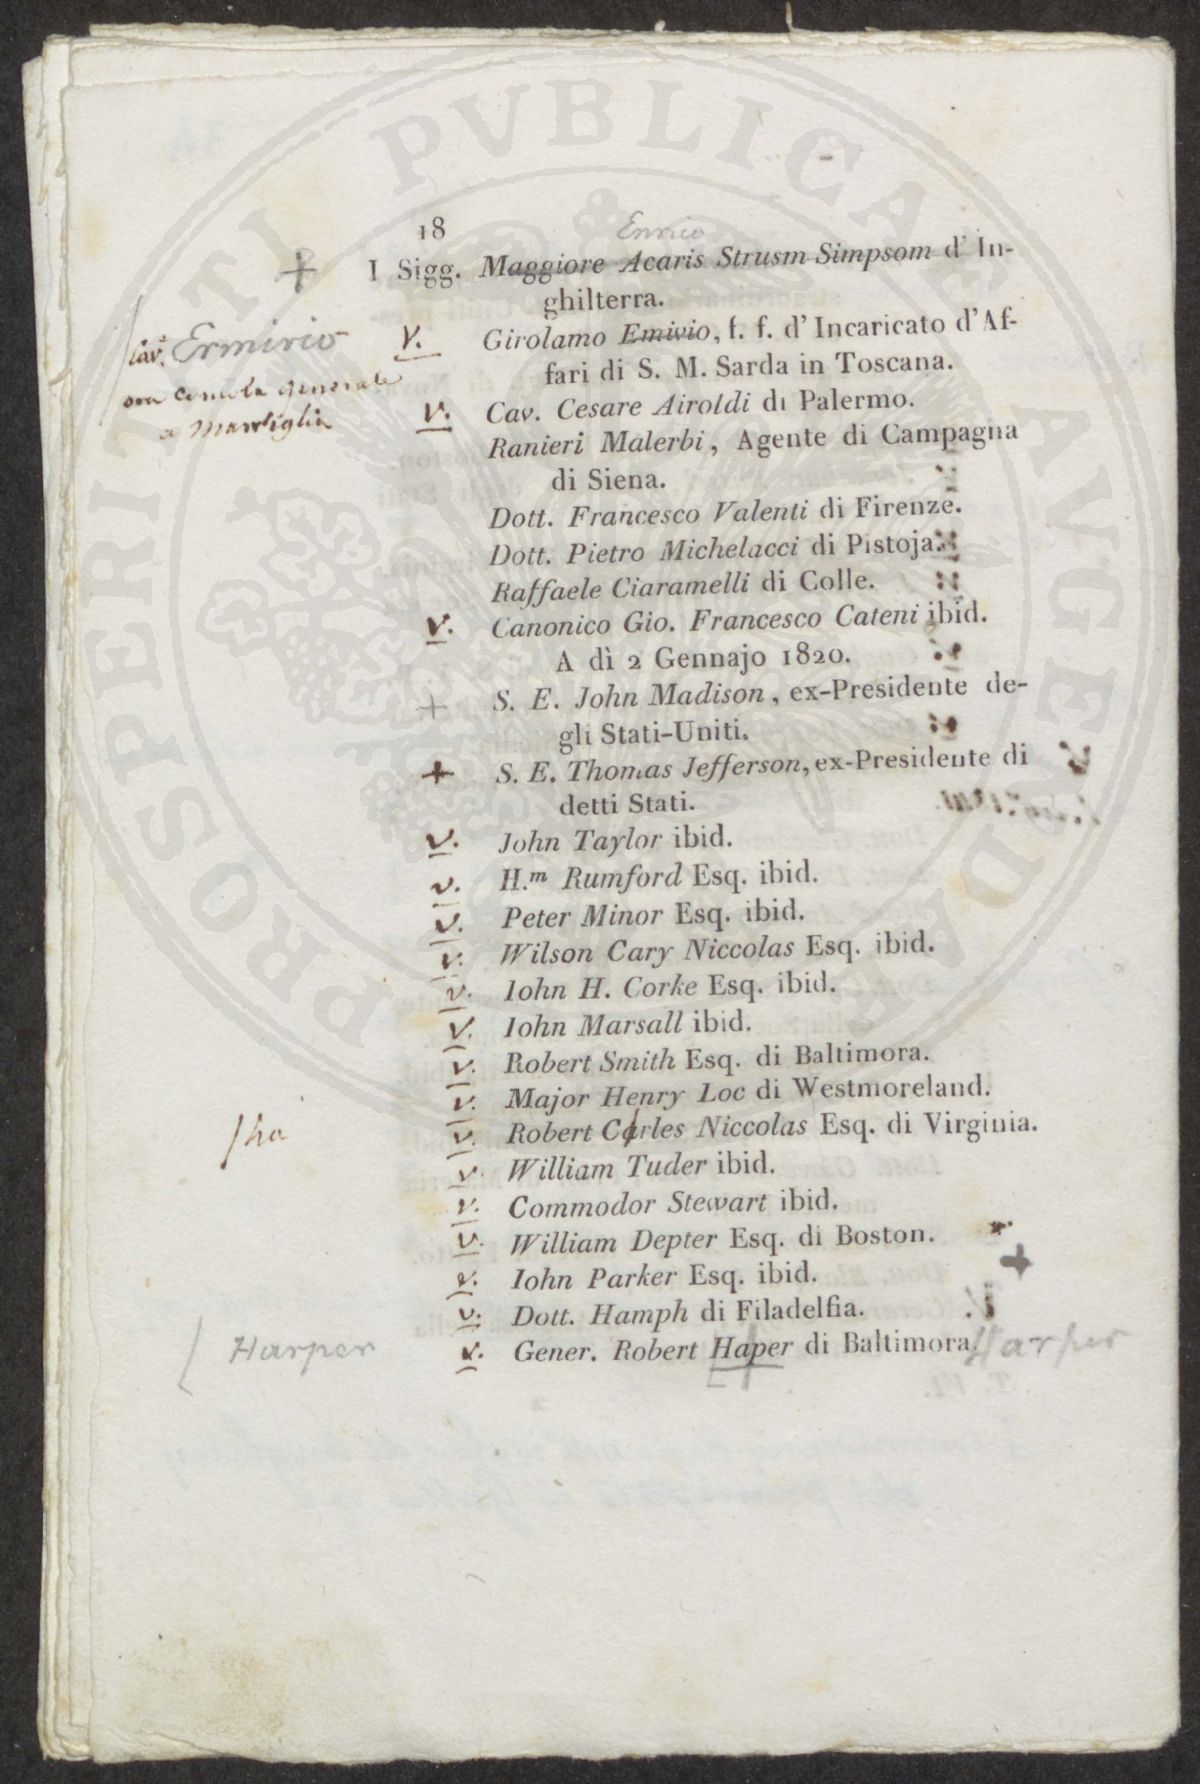 PROSPERITATI PVBLICAE AVGENDAE
18
Enrico
+ I Sigg. Maggiore Acaris Strusm Simpsom d' In-
ghilterra.
Cav. Ermirio
v. Girolamo Emivio, f. f. d' Incaricato d' Af-
fari di S. M. Sarda in Toscana.
ora console generale
a Marsiglia
v. Cav. Cesare Airoldi di Palermo.
Ranieri Malerbi, Agente di Campagna
di Siena.
Dott. Francesco Valenti di Firenze.
Dott. Pietro Michelacci di Pistoja.
Raffaele Ciaramelli di Colle.
v. Canonico Gio. Francesco Cateni ibid.
A dì 2 Gennajo 1820.
+ S. E. John Madison, ex-Presidente de-
gli Stati-Uniti.
+ S. E. Thomas Jefferson, ex-Presidente di
detti Stati.
v. John Taylor ibid.
v. H.m Rumford Esq. ibid.
v. Peter Minor Esq. ibid.
v. Wilson Cary Niccolas Esq. ibid.
v. Iohn H. Corke Esq. ibid.
v. Iohn Marsall ibid.
v. Robert Smith Esq. di Baltimora.
v. Major Henry Loc di Westmoreland.
/ha
v. Robert Carles Niccolas Esq. di Virginia.
v. William Tuder ibid.
v. Commodor Stewart ibid.
v. William Depter Esq. di Boston.
v. Iohn Parker Esq. ibid.
v. Dott. Hamph di Filadelfia.
Harper v. Gener. Robert Haper di Baltimora. Harper